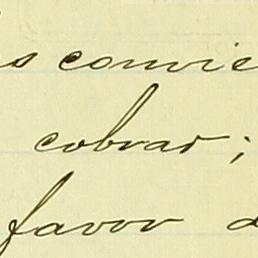 s convie
cobrar;
favor d